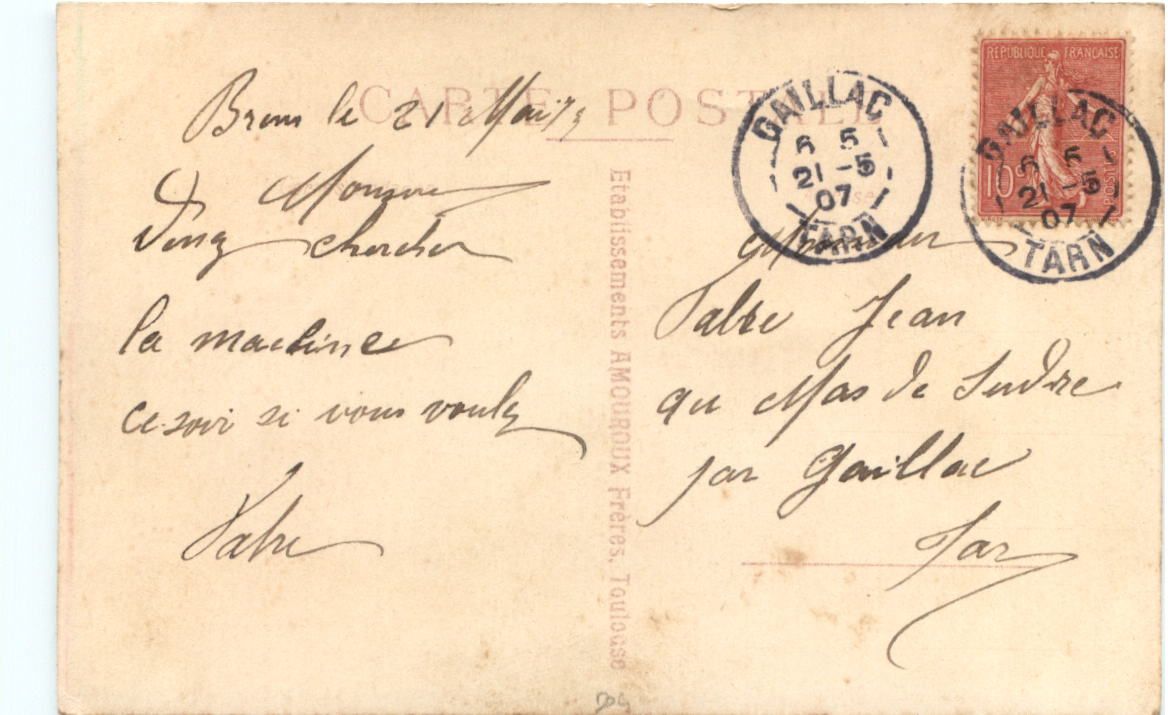 CARTE POSTALE
le 21 Mai
Monsieur
Venez chercher
la machine
ce soir si vous voulez
Valre
Etablissements AMOUROUX Frères, Toulouse
GAILLAC
6 5
21 -5
07
TARN
REPUBLIQUE FRANÇAISE
10c
POSTES
GAILLAC
6 5
21 -5
07
TARN
Monsieur
Jean
au Mas de
par Gaillac
Tarn